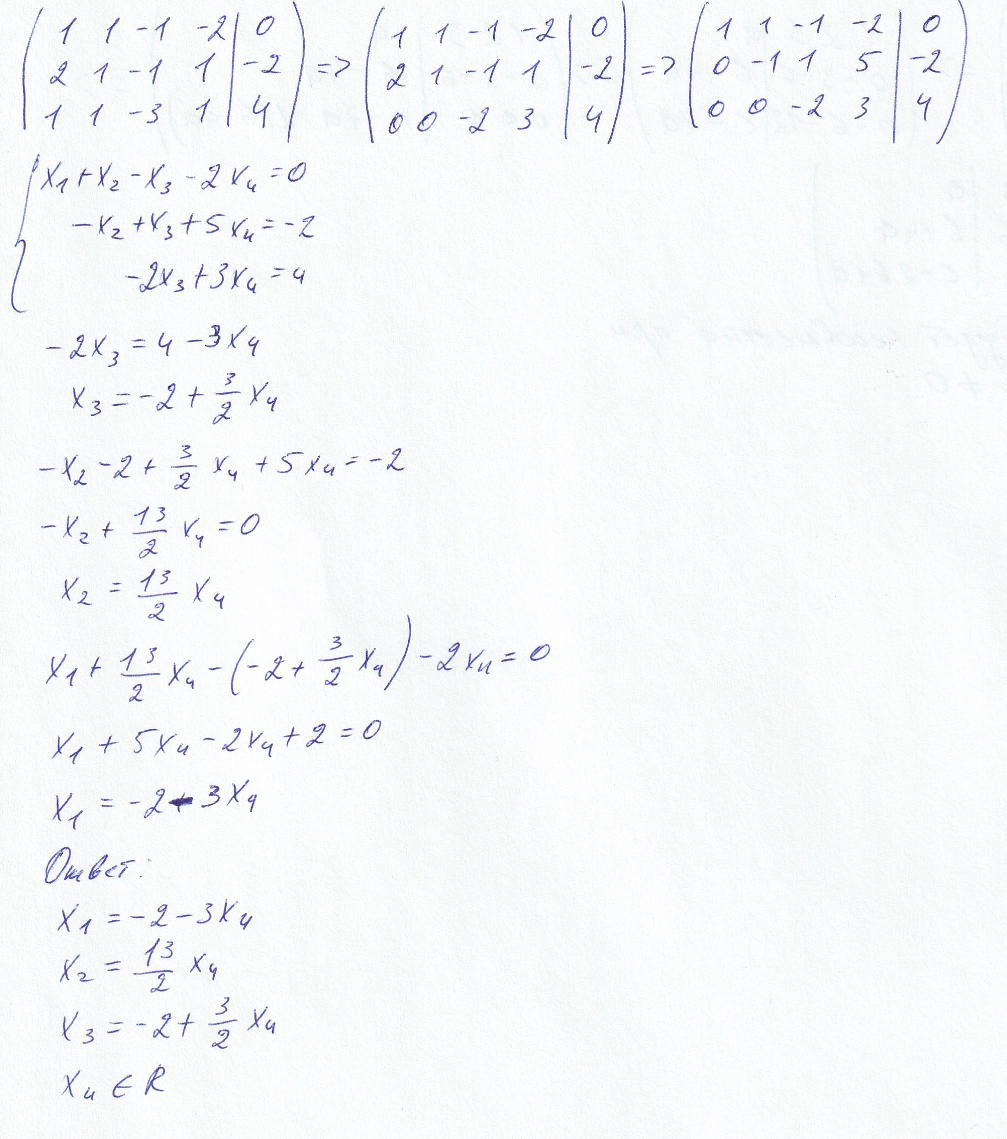 ( 1 1 -1 -2 | 0 ) => ( 1 1 -1 -2 | 0 ) => ( 1 1 -1 -2 | 0 )
( 2 1 -1 1 | -2 ) ( 2 1 -1 1 | -2 ) ( 0 -1 1 5 | -2 )
( 1 1 -3 1 | 4 ) ( 0 0 -2 3 | 4 ) ( 0 0 -2 3 | 4 )
{ x₁ + x₂ - x₃ - 2x₄ = 0
-x₂ + x₃ + 5x₄ = -2
-2x₃ + 3x₄ = 4
-2x₃ = 4 - 3x₄
x₃ = -2 + 3/2 x₄
-x₂ - 2 + 3/2 x₄ + 5x₄ = -2
-x₂ + 13/2 x₄ = 0
x₂ = 13/2 x₄
x₁ + 13/2 x₄ - (-2 + 3/2 x₄) - 2x₄ = 0
x₁ + 5x₄ - 2x₄ + 2 = 0
x₁ = -2 - 3x₄
Ответ:
x₁ = -2 - 3x₄
x₂ = 13/2 x₄
x₃ = -2 + 3/2 x₄
x₄ ∈ R